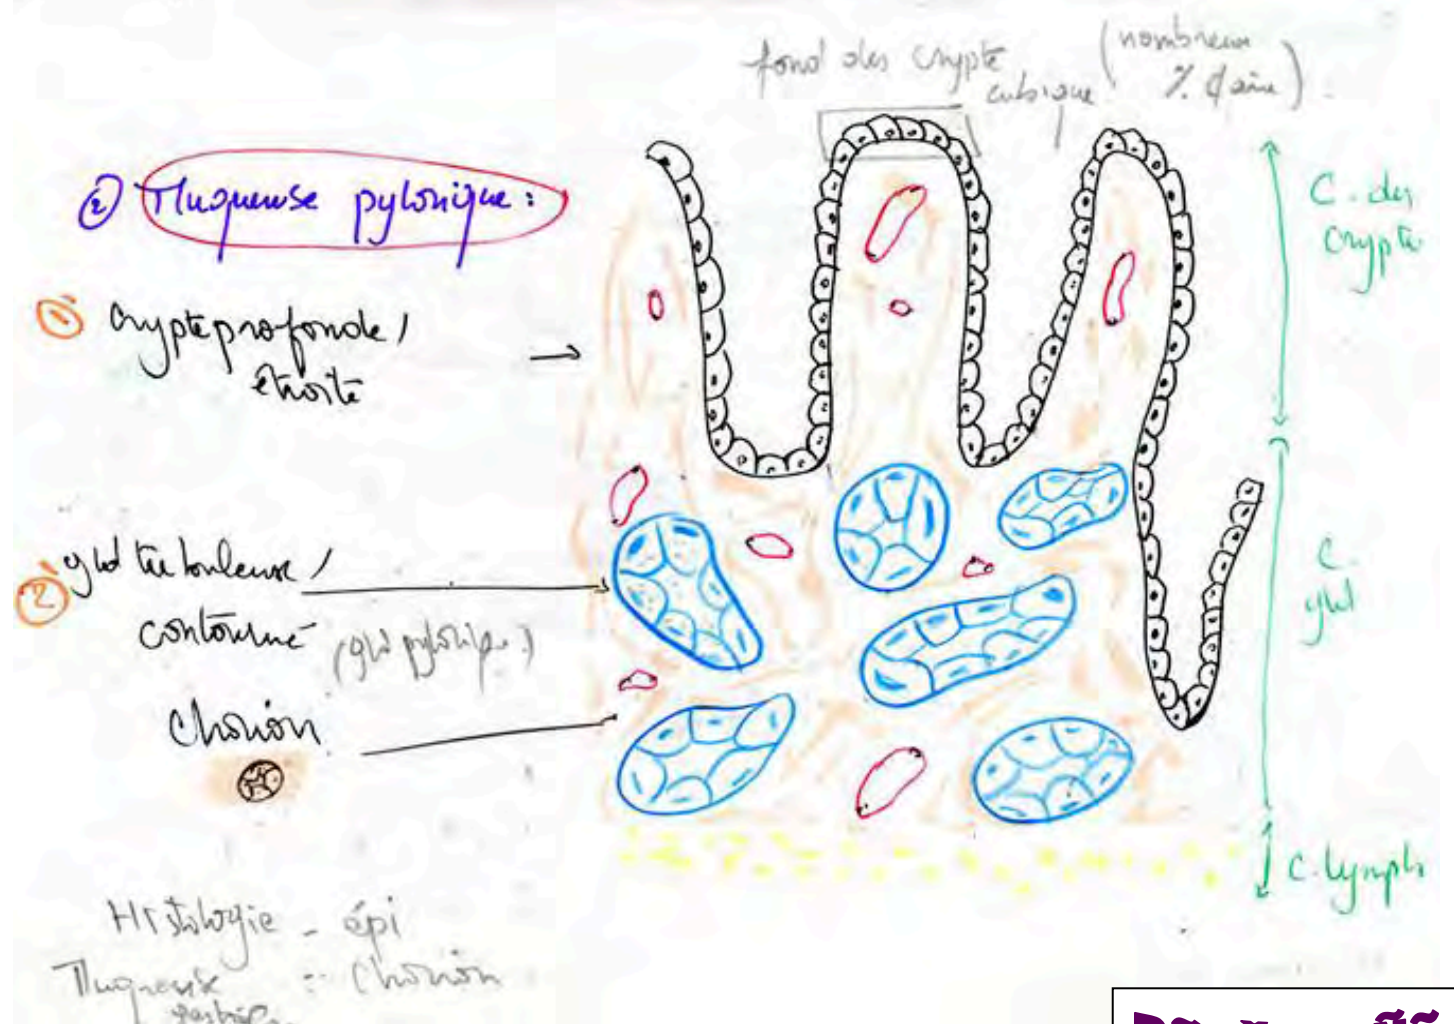 fond des crypte
cubique
(nombreux
② Muqueuse pylorique :
C. des
crypte
① crypte profonde /
étroite
② gld tubuleuse /
contourné (gld pylorique)
C.
gld
chorion
C. lymph
Histologie - épi
Muqueuse - chorion